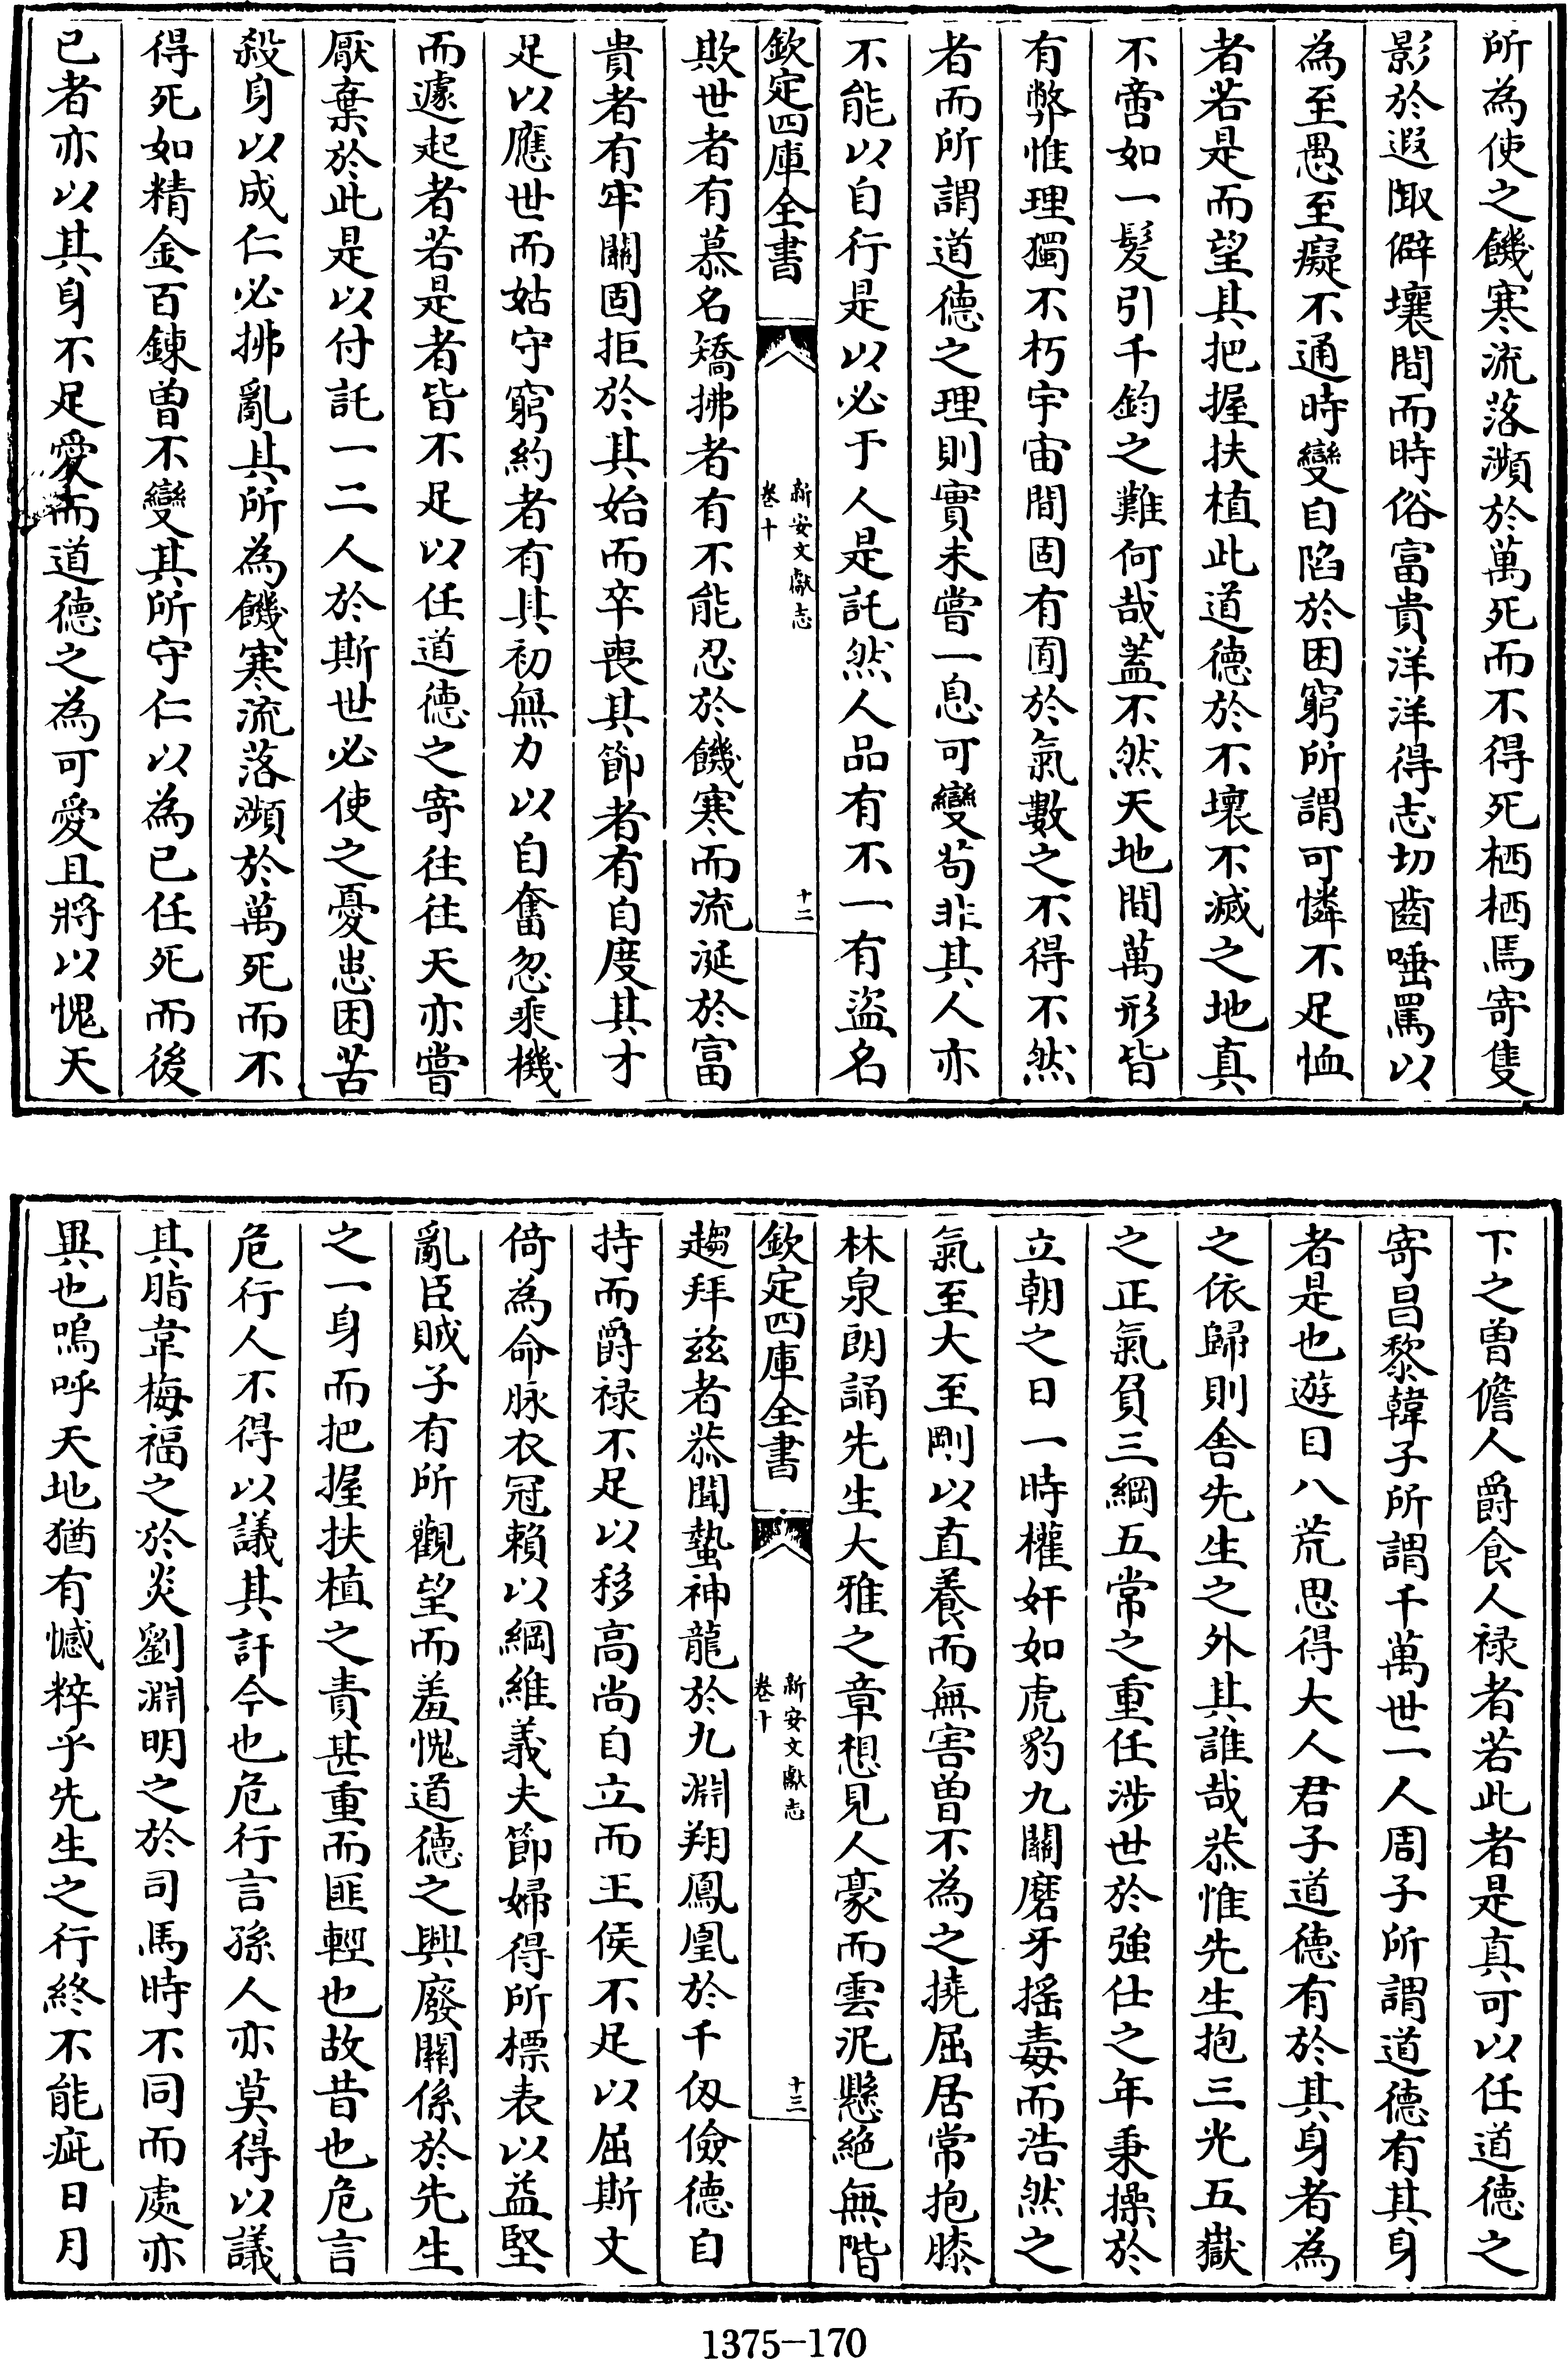 所為使之饑寒流落瀕於萬死而不得死栖栖焉寄隻
影於遐陬僻壤間而時俗富貴洋洋得志切齒唾罵以
為至愚至癡不通時變自陷於困窮所謂可憐不足恤
者若是而望其把握扶植此道德於不壞不滅之地真
不啻如一髮引千鈞之難何哉蓋不然天地間萬形皆
有弊惟理獨不朽宇宙間固有囿於氣數之不得不然
者而所謂道德之理則實未嘗一息可變苟非其人亦
不能以自行是以必于人是託然人品有不一有盜名
欽定四庫全書
新安文獻志
卷十
十二
欺世者有慕名矯拂者有不能忍於饑寒而流涎於富
貴者有牢關固拒於其始而卒喪其節者有自度其才
足以應世而姑守窮約者有其初無力以自奮忽乘機
而遽起者若是者皆不足以任道德之寄往往天亦嘗
厭棄於此是以付託一二人於斯世必使之憂患困苦
殺身以成仁必拂亂其所為饑寒流落瀕於萬死而不
得死如精金百鍊曽不變其所守仁以為己任死而後
已者亦以其身不足愛而道德之為可愛且將以愧天
下之曽儋人爵食人祿者若此者是真可以任道德之
寄昌黎韓子所謂千萬世一人周子所謂道德有其身
者是也遊目八荒思得大人君子道德有於其身者為
之依歸則舍先生之外其誰哉恭惟先生抱三光五嶽
之正氣負三綱五常之重任涉世於強仕之年秉操於
立朝之日一時權奸如虎豹九關磨牙搖毒而浩然之
氣至大至剛以直養而無害曽不為之撓屈居常抱膝
林泉朗誦先生大雅之章想見人豪而雲泥懸絕無階
欽定四庫全書
新安文獻志
卷十
十三
趨拜茲者恭聞蟄神龍於九淵翔鳳凰於千仞儉德自
持而爵祿不足以移高尚自立而王侯不足以屈斯文
倚為命脉衣冠賴以綱維義夫節婦得所標表以益堅
亂臣賊子有所觀望而羞愧道德之興廢關係於先生
之一身而把握扶植之責甚重而匪輕也故昔也危言
危行人不得以議其訐今也危行言孫人亦莫得以議
其脂韋梅福之於炎劉淵明之於司馬時不同而處亦
異也嗚呼天地猶有憾粹乎先生之行終不能疵日月
1375-170